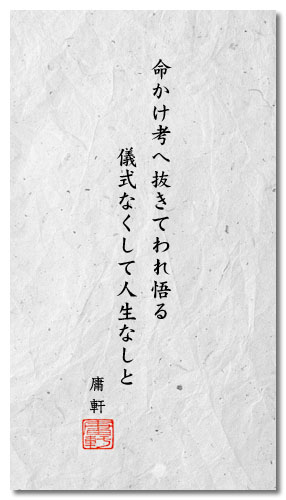 命かけ考へ抜きてわれ悟る
儀式なくして人生なしと
庸軒
庸軒